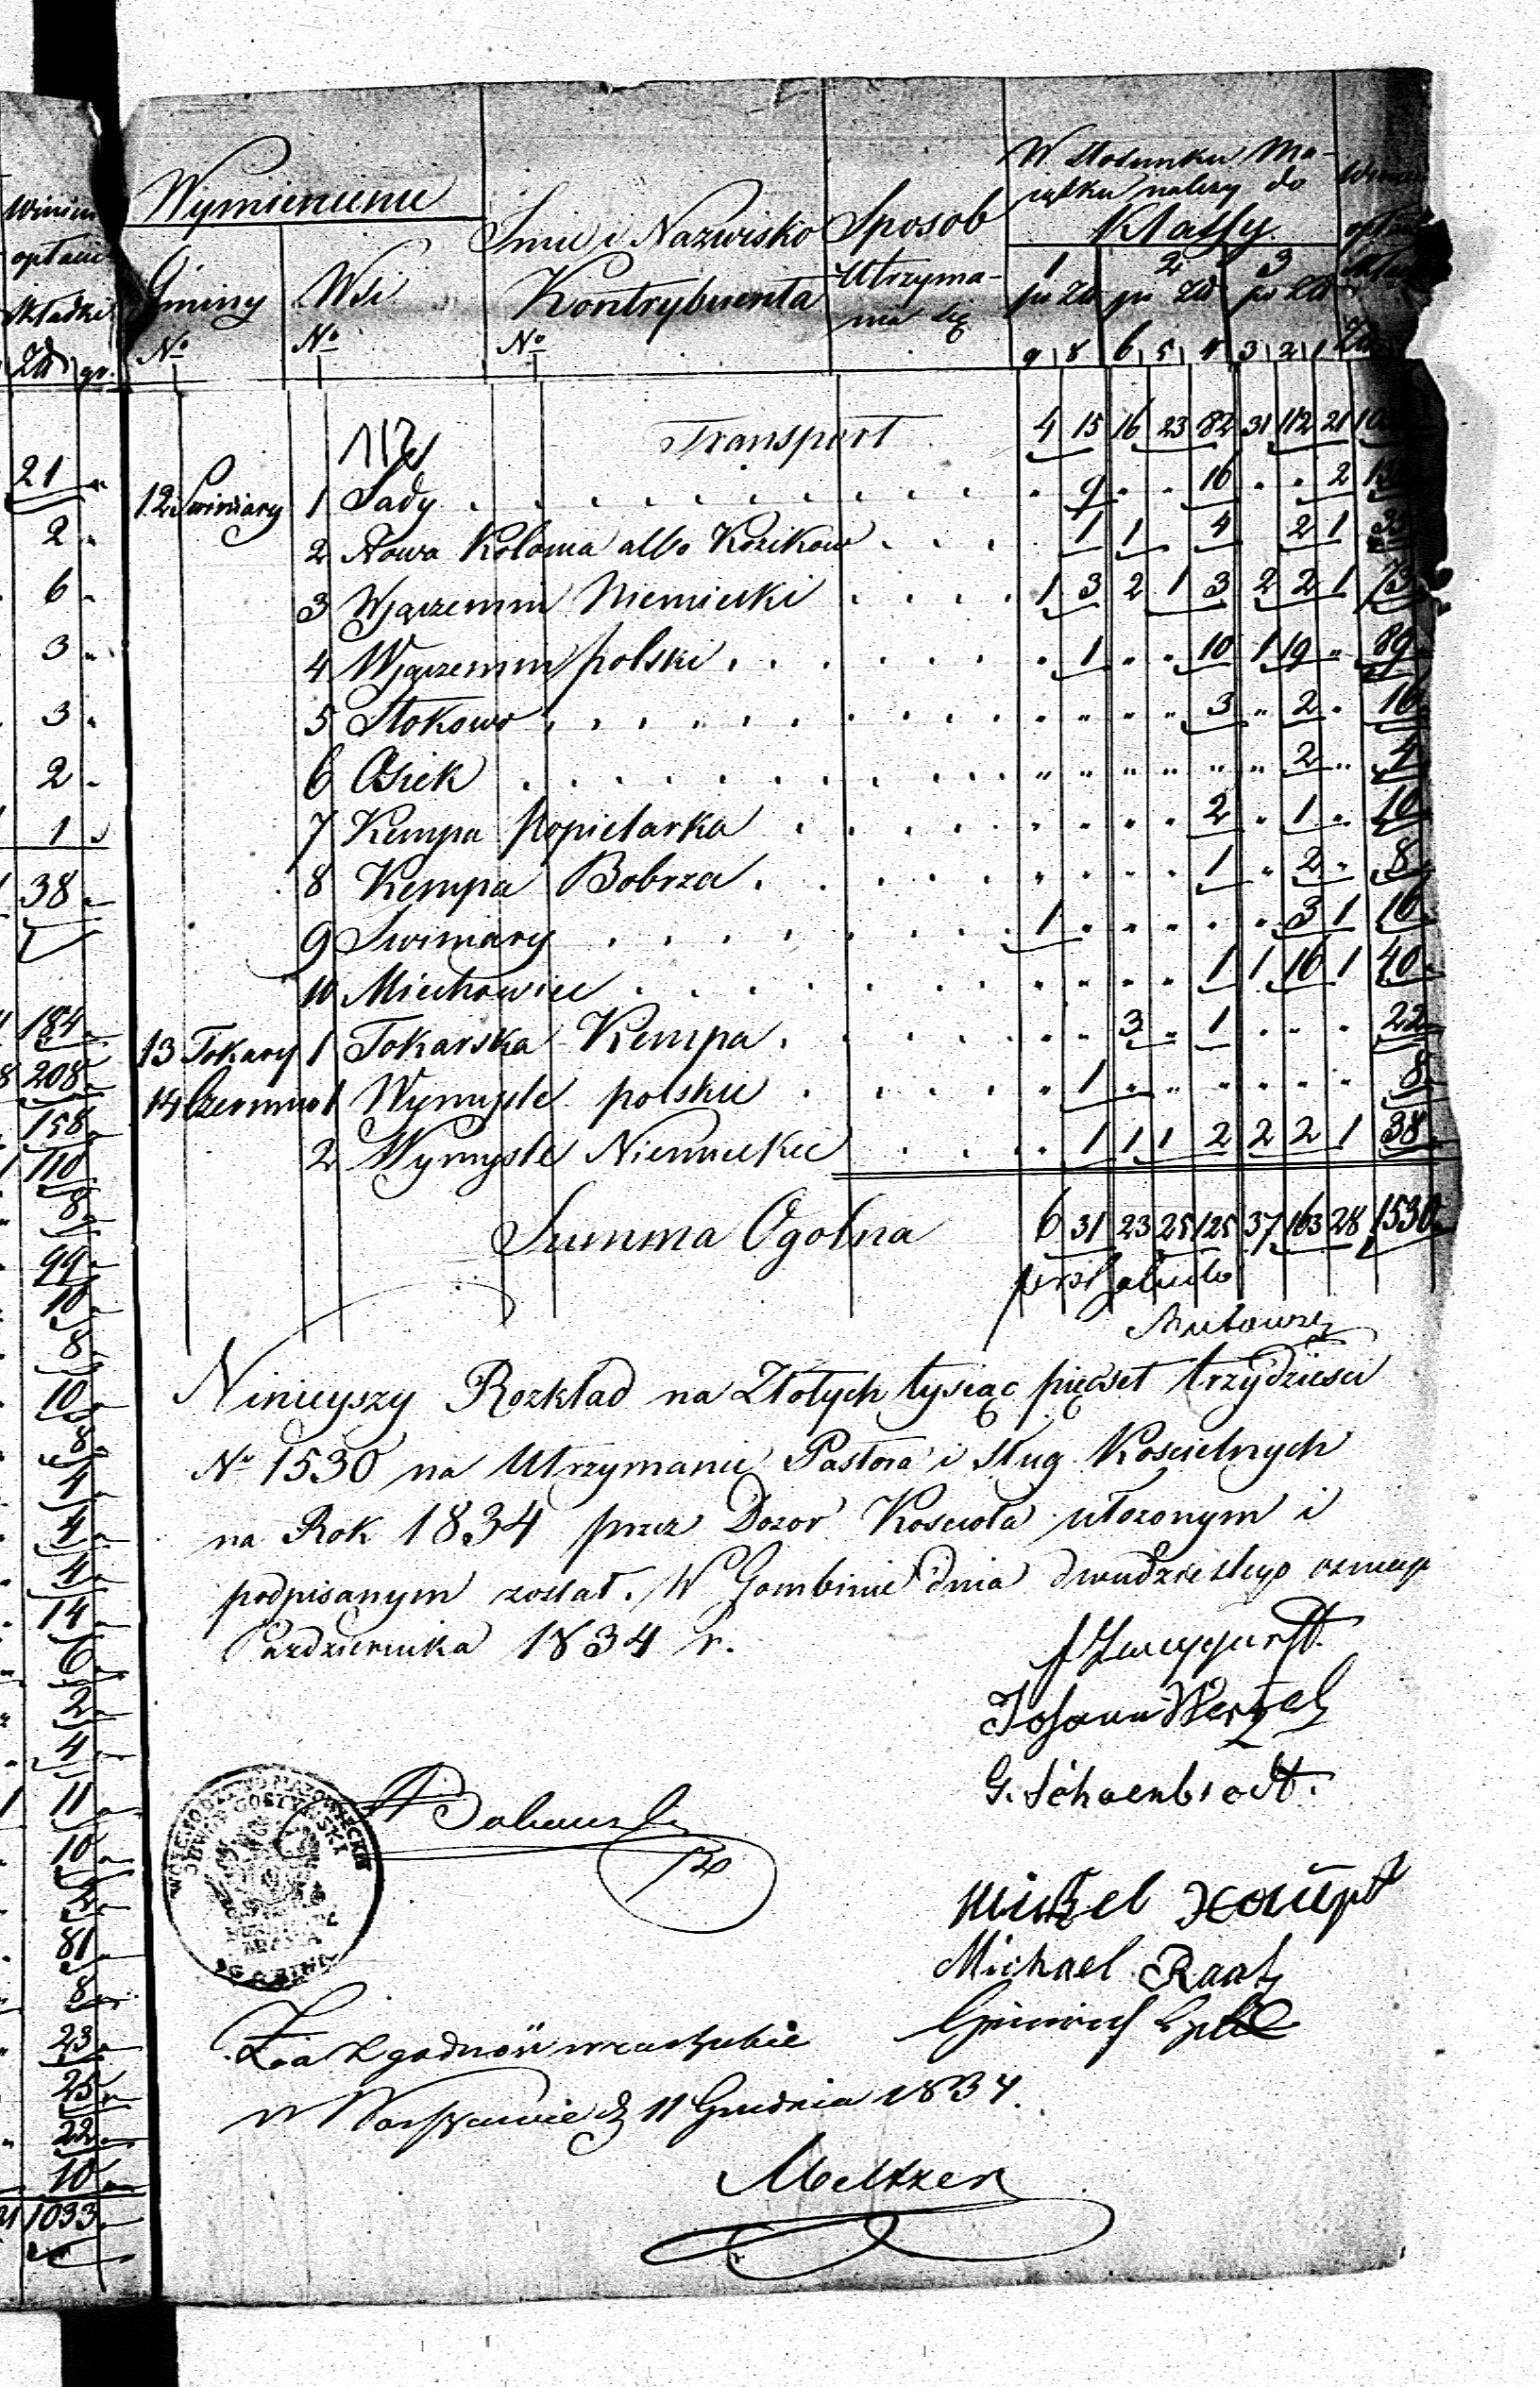 Winien
opłacić
Składki
Zł gr.
21 "
2 "
6 "
3 "
3 "
2 "
1 "
38
184
208
158
110
8
99
10
8
10
8
4
4
4
14
6
2
4
11
10
2
81
8
23
25
22
10
1093
Wymienienie
Gminy Wsi
No No
Imie i Nazwisko
Kontrybuenta
No
Sposob
Utrzyma-
nia się
W Stosunku Ma-
iątku należy do
Klassy
1 2 3
po Zł po Zł po Zł
9 8 6 5 4 3 2 1
Winien
opłacić
Transport 4 15 16 23 82 31 112 21
12 Swiniary 1 Sady . . . " 9 " " 16 " " 2
2 Nowa Kolonia albo Kozikow . . . 1 1 4 2 1 35
3 Wjączemin Niemiecki . . . 1 3 2 1 3 2 2 1 73
4 Wjączemin polski . . . " 1 " " 10 1 19 " 89
5 Stokowo . . . " " " " 3 " 2 " 16
6 Osiek . . . " " " " " " 2 " 4
7 Kempa popielarka . . . " " " " 2 " 1 " 10
8 Kempa Bobrza . . . " " " " 1 " 2 " 8
9 Swiniary . . . 1 " " " " " 3 1 16
10 Miechowice . . . " " " " 1 1 16 1 40
13 Tokary 1 Tokarska Kempa . . . " " 3 " 1 " " " 22
14 Czermno 1 Wymysle polskie . . . " 1 " " " " " " 8
2 Wymysle Niemieckie . . . " 1 1 1 2 2 2 1 38
Summa Ogolna 6 31 23 25 125 37 163 28 1530
Ninieyszy Rozkład na Złotych tysiąc pięćset trzydziesci
No 1530 na Utrzymanie Pastora i sług Koscielnych
na Rok 1834 przez Dozor Koscioła ułozonym i
podpisanym został. W Gombinie dnia dwudziestego osmego
Pazdziernika 1834 r.
Johann Wenzel
G. Schoenbrodt.
WOJEWODZTWO MAZOWIECKIE
OBWOD GOSTYNSKI
Michael Raatz
Za zgodność
w Warszawie d 11 Grudnia 1834.
Meltzer